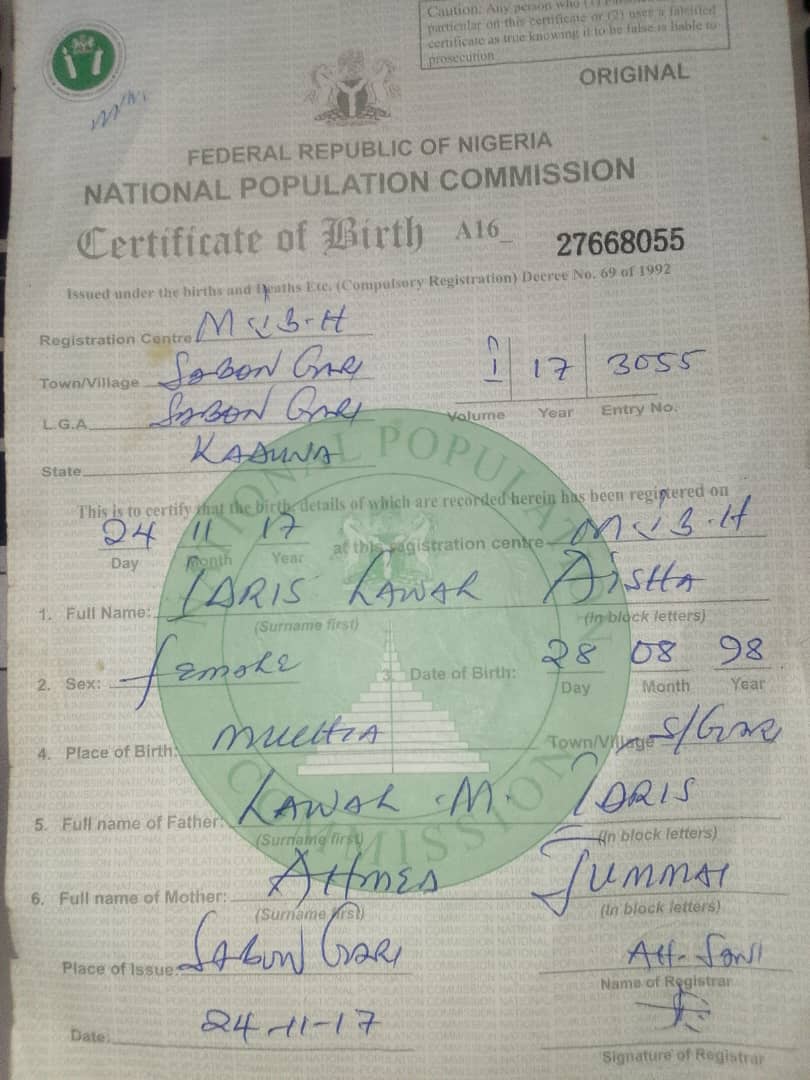 Caution: Any person who (1)
particular on this certificate or (2) uses a falsified
certificate as true knowing it to be false is liable to
prosecution
ORIGINAL
FEDERAL REPUBLIC OF NIGERIA
NATIONAL POPULATION COMMISSION
Certificate of Birth A16_ 27668055
Issued under the births and Deaths Etc. (Compulsory Registration) Decree No. 69 of 1992
Registration Centre
Town/Village SABON GARI
I 17 3055
L.G.A. SABON GARI
Volume Year Entry No.
State KADUNA
This is to certify that the birth, details of which are recorded herein has been registered on
24 11 17 at this registration centre
Day Month Year
1. Full Name: IDRIS LAWAL AISHA
(Surname first) (In block letters)
2. Sex: female 3. Date of Birth: 28 08 98
Day Month Year
4. Place of Birth: Town/Village S/GARI
5. Full name of Father: LAWAL M. IDRIS
(Surname first) (In block letters)
6. Full name of Mother: AHMED JUMMAI
(Surname first) (In block letters)
Place of Issue SABON GARI
Name of Registrar
Date: 24-11-17
Signature of Registrar
NATIONAL POPULATION COMMISSION